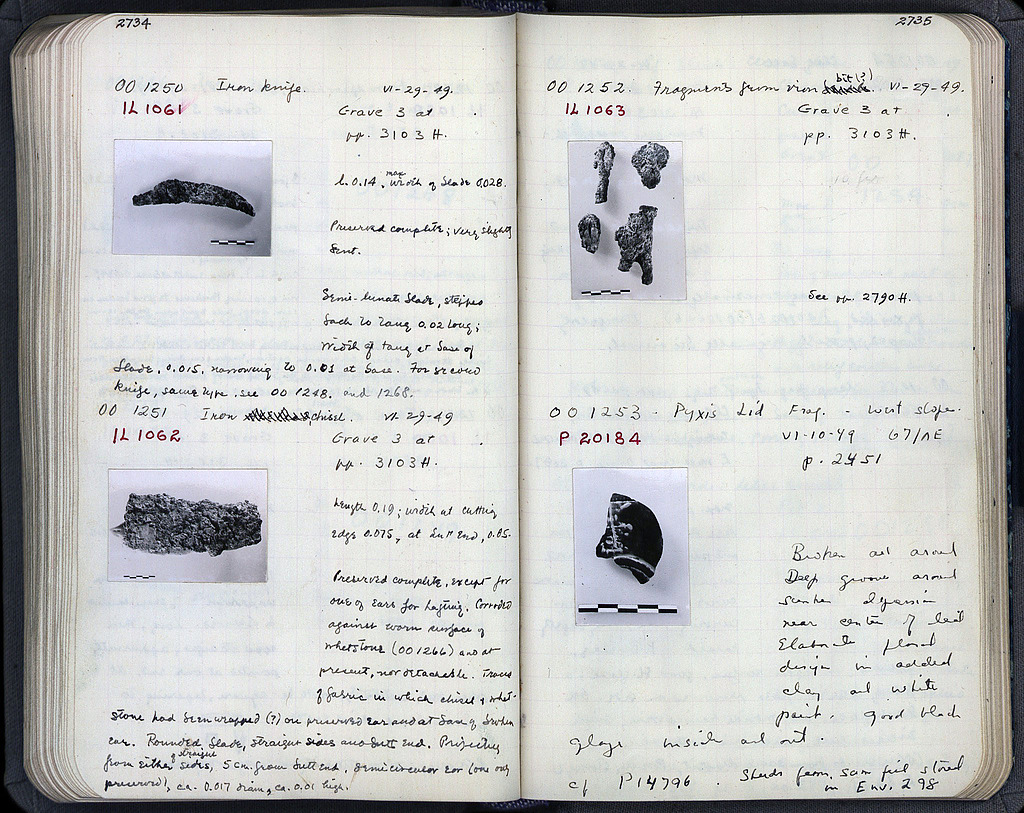 2734
OO 1250 Iron knife. VI-29-49.
IL 1061 Grave 3 at
pp. 3103 ff.
L. 0.14, max width of blade 0.028.
Preserved complete; very slightly
bent.
Semi-lunate blade, stepped
back to tang 0.02 long;
width of tang at base of
blade, 0.015, narrowing to 0.01 at base. For second
knife, same type, see OO 1248 and 1268.
OO 1251 Iron chisel. VI-29-49
IL 1062 Grave 3 at
pp. 3103 ff.
Length 0.19; width at cutting
edge 0.075, at butt end, 0.05.
Preserved complete, except for
one of ears for hafting. Corroded
against worn surface of
whetstone (OO 1266) and at
present, not detachable. Traces
of fabric in which chisel & whet-
stone had been wrapped (?) on preserved ear and at base of broken
ear. Rounded blade, straight sides and butt end. Projecting
from either straight sides, 5 cm. from butt end, semicircular ear (one only
preserved), ca. 0.017 diam, ca. 0.01 high.
2735
OO 1252. Fragments from iron bit(?) VI-29-49.
IL 1063 Grave 3 at
pp. 3103 ff.
See pp. 2790 ff.
OO 1253 - Pyxis Lid Frag. - West slope.
P 20184 VI-10-49 67/ΛΕ
p. 2451
Broken all around
Deep groove around
sunken depression
near center of
Elaborate floral
design in added
clay and white
paint. Good black
glaze inside and out.
cf P 14796. Sherds from same fill stored
in Env. 298